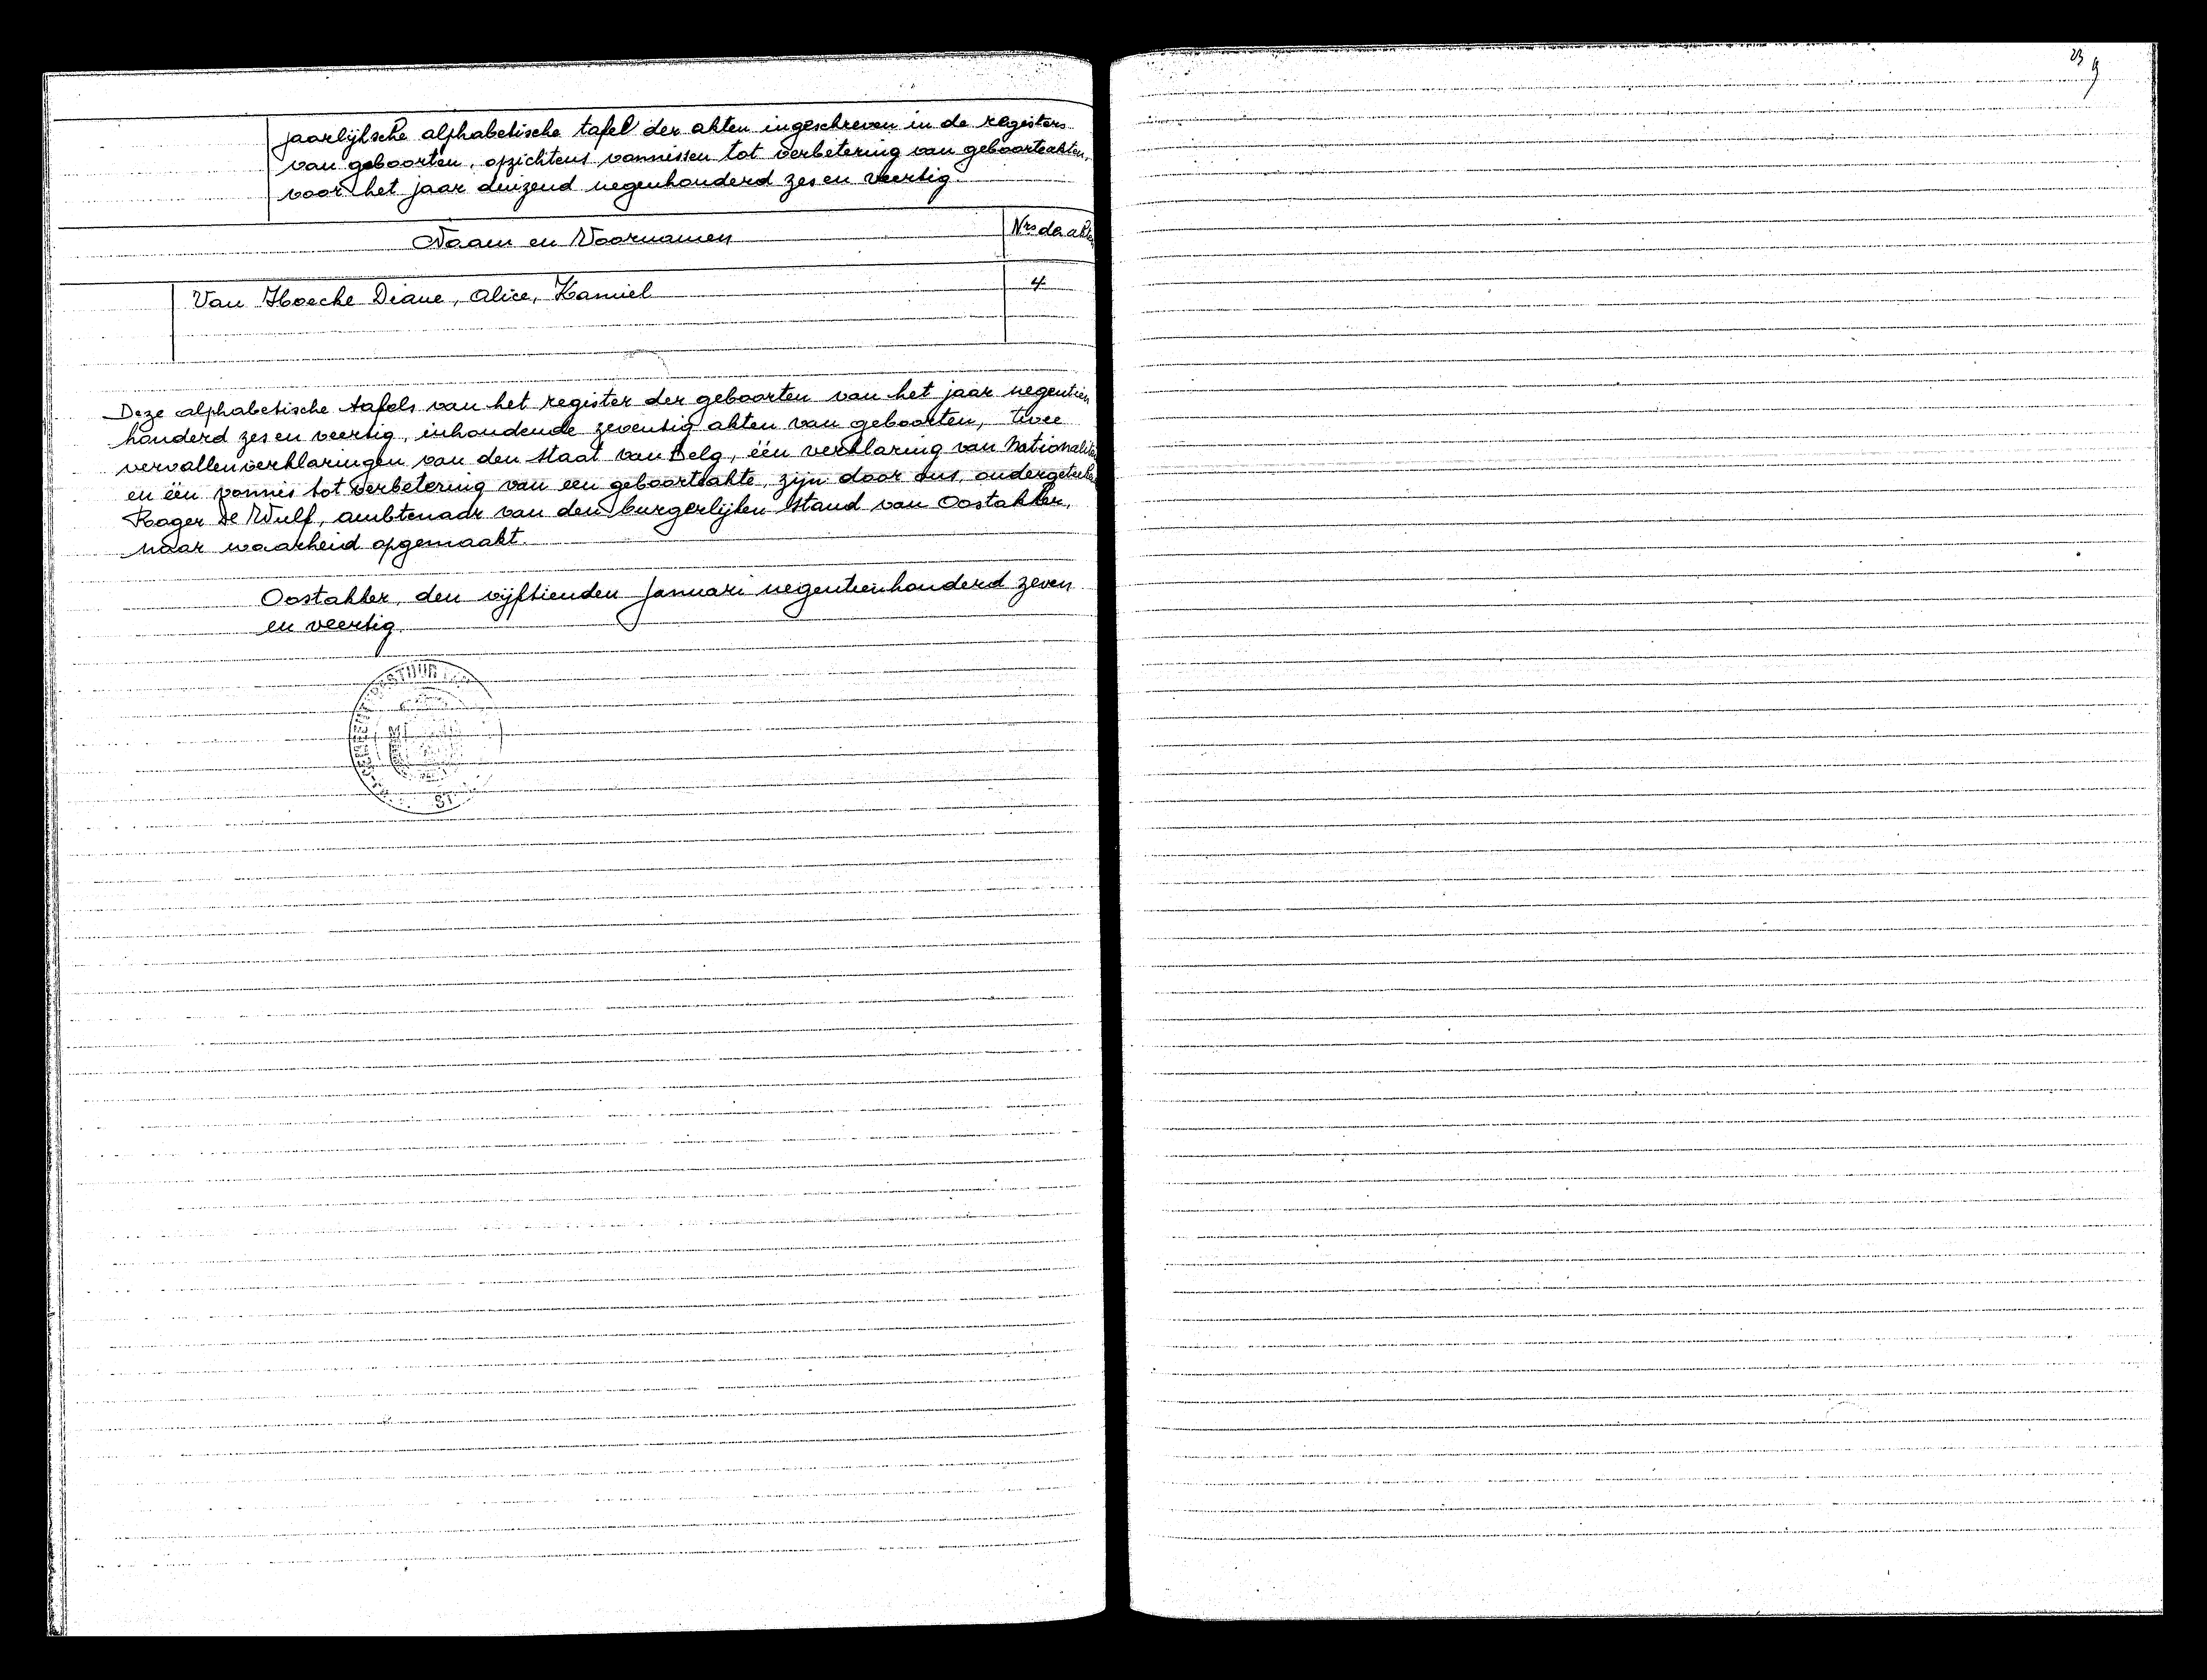 jaarlijksche alphabetische tafel der akten ingeschreven in de registers
van geboorten, opzichtens vonnissen tot verbetering van geboorteakten,
voor het jaar duizend negenhonderd zes en veertig.
Naam en Voornamen
Nrs der akten
Van Hoecke Diane, Alice, Kamiel
4
Deze alphabetische tafels van het register der geboorten van het jaar negentien
honderd zes en veertig, inhoudende zeventig akten van geboorten, twee
vervallenverklaringen van den staat van Belg, één verklaring van nationaliteit
en één vonnis tot verbetering van een geboorteakte, zijn door ons, ondergeteekende
Roger De Wulf, ambtenaar van den burgerlijken stand van Oostakker,
naar waarheid opgemaakt.
Oostakker, den vijftienden Januari negentienhonderd zeven
en veertig.
GEMEENTEBESTUUR
ST
23